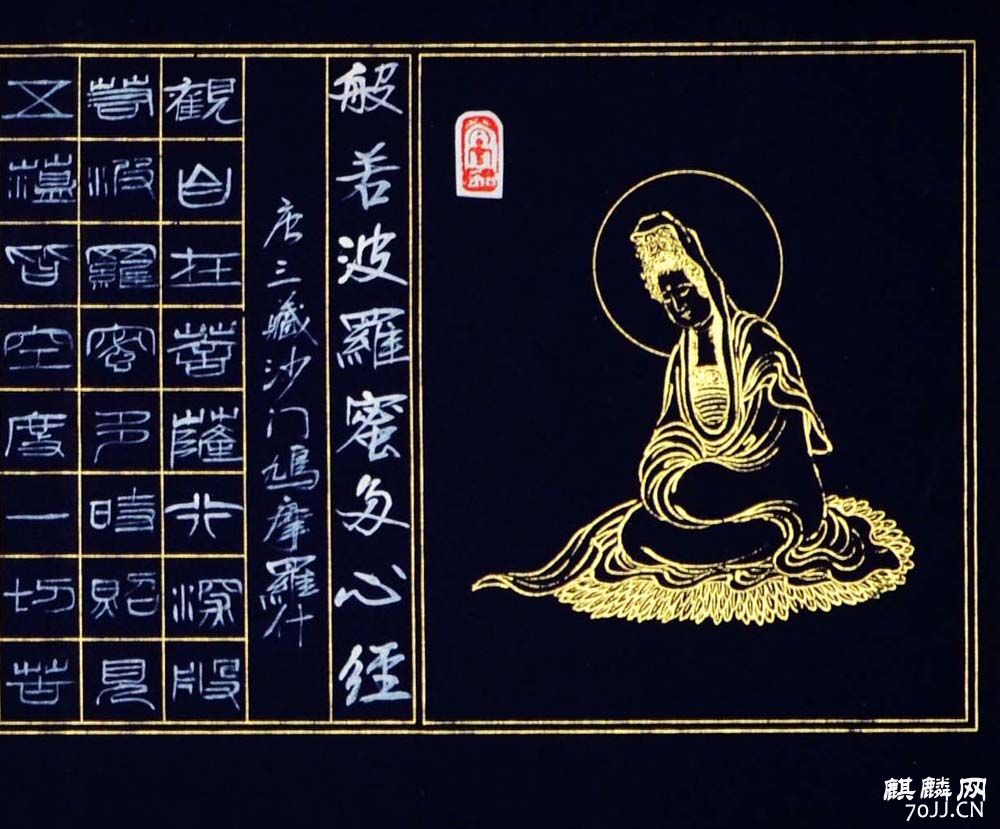 般若波羅蜜多心經
唐三藏沙门鳩摩羅什
觀自在菩薩行深般
若波羅蜜多時照見
五蘊皆空度一切苦
麒麟网
70JJ.CN